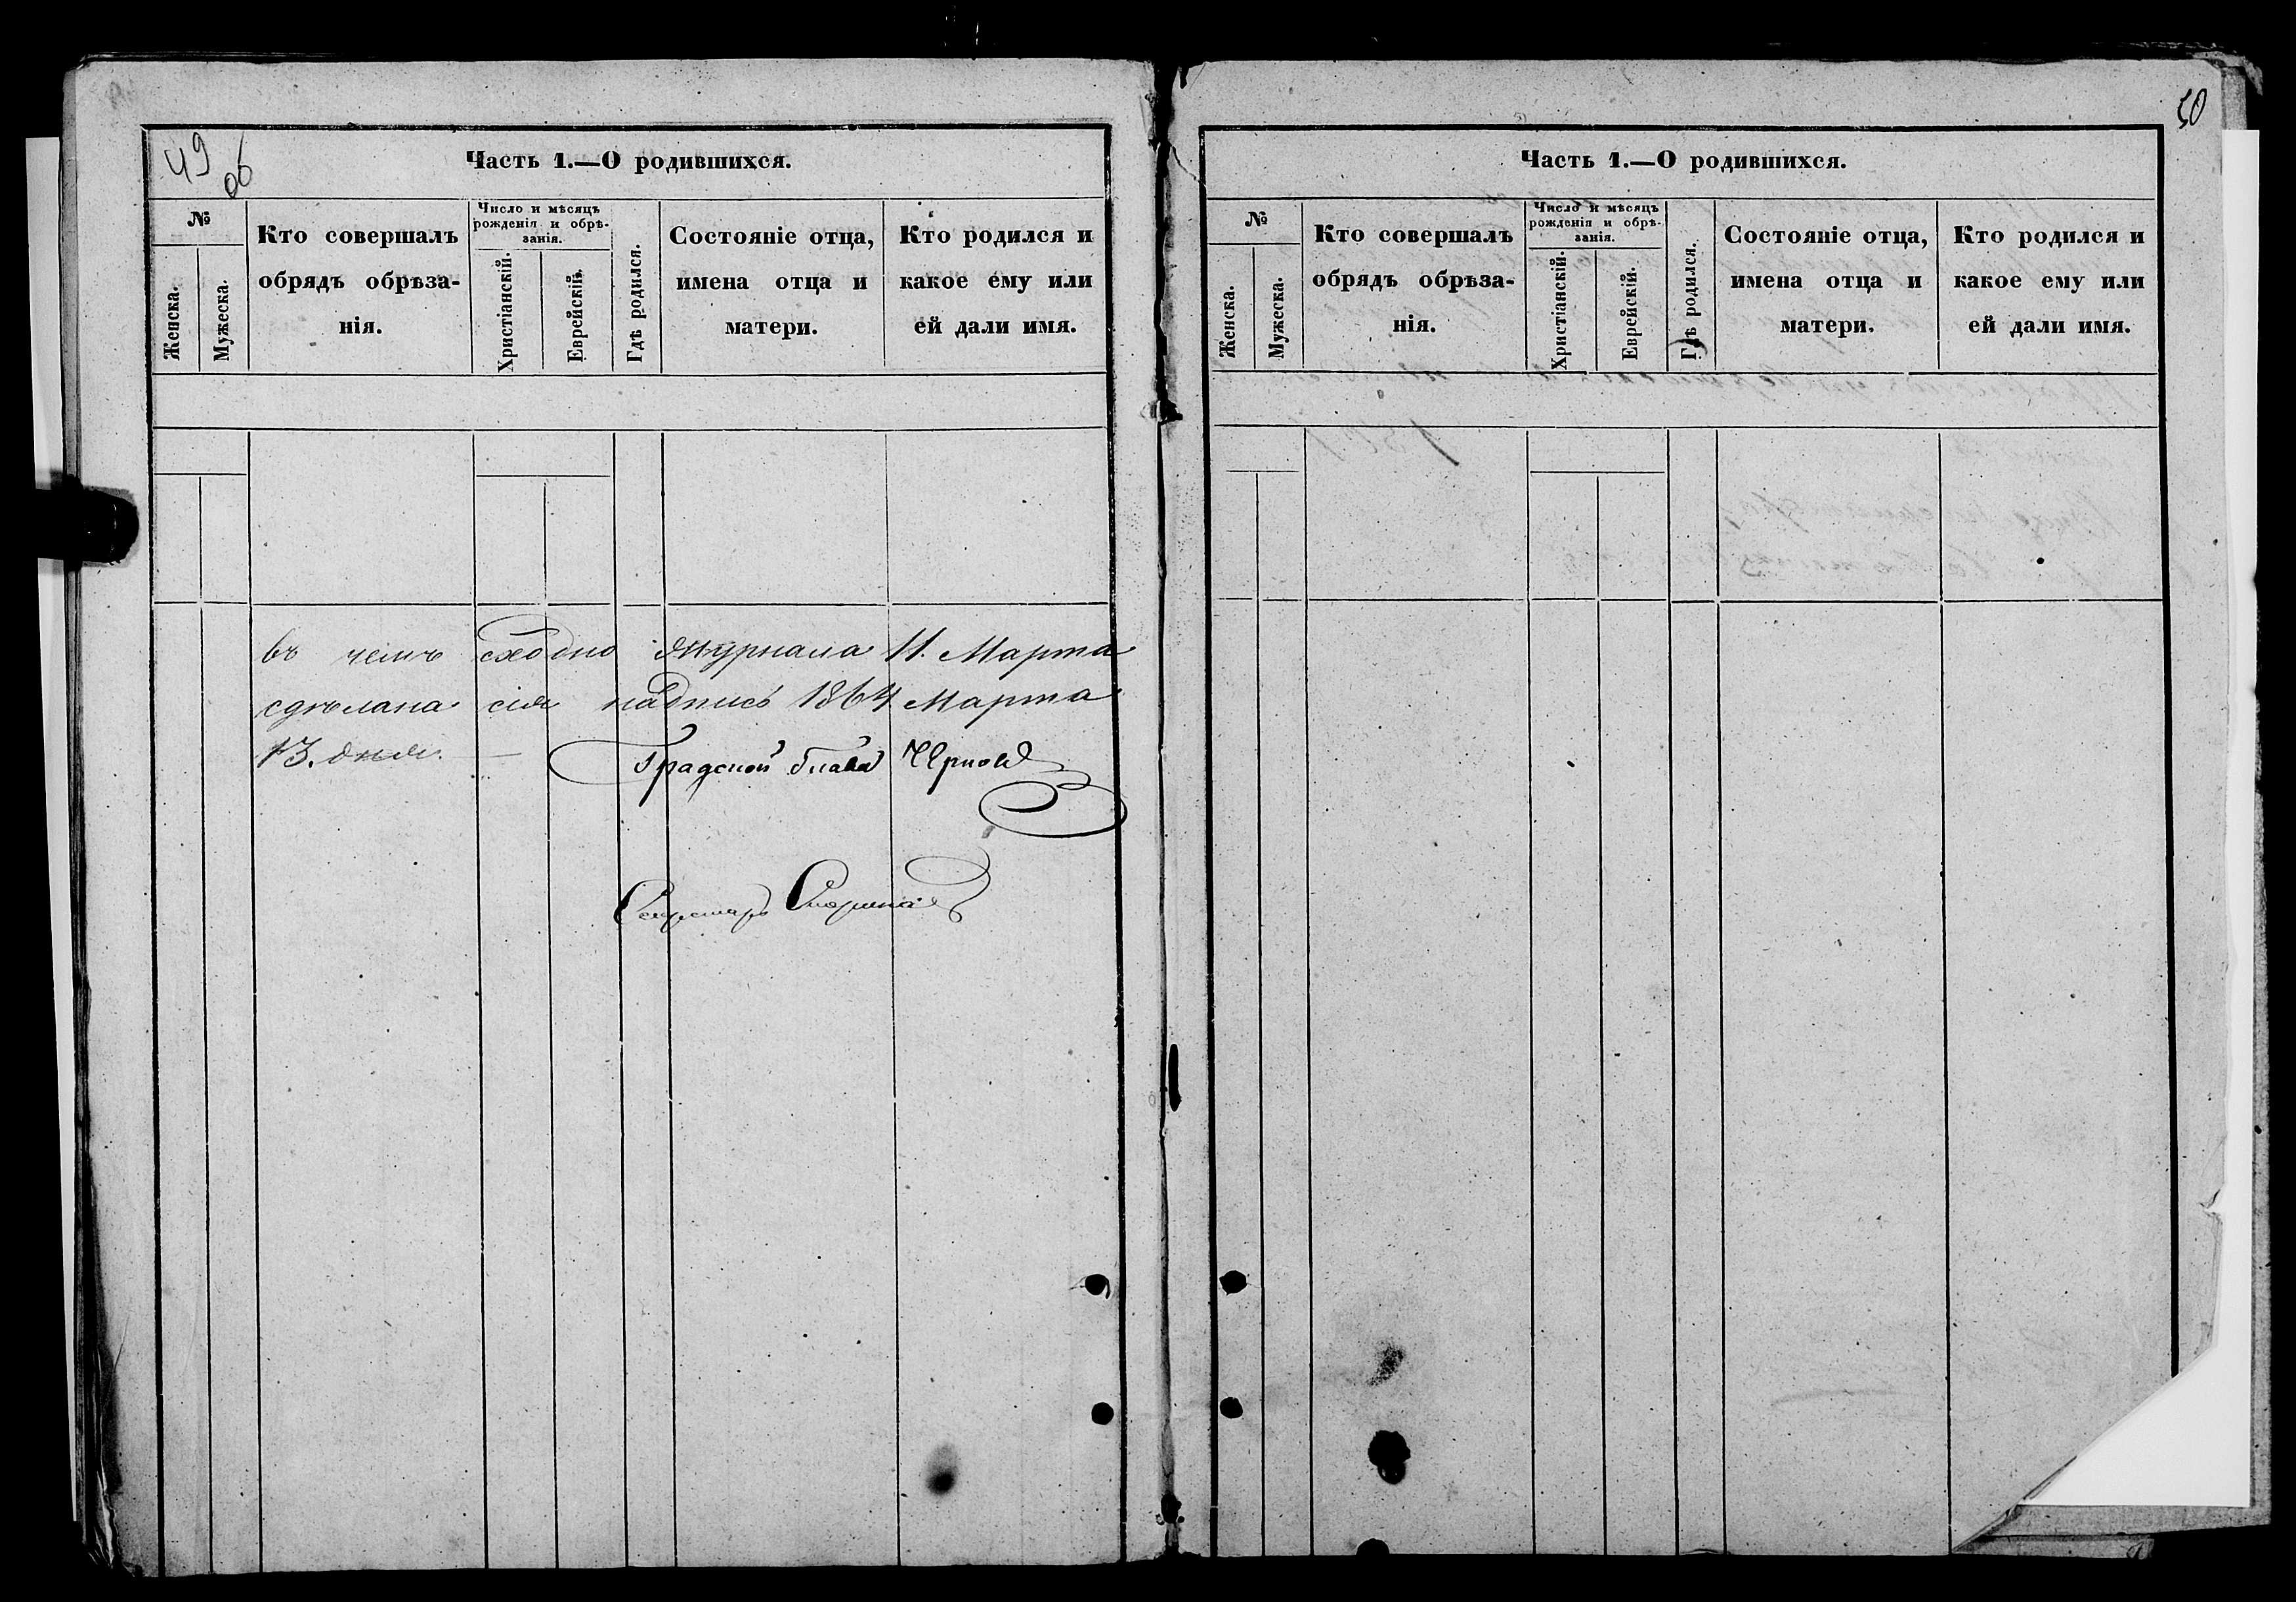 49
об
Часть 1.—О родившихся.
№
Женска.
Мужеска.
Кто совершалъ
обрядъ обрѣза-
нія.
Число и мѣсяцъ
рожденія и обрѣ-
занія.
Христіанскій.
Еврейскій.
Гдѣ родился.
Состояніе отца,
имена отца и
матери.
Кто родился и
какое ему или
ей дали имя.
въ чемъ сходно журнала 11. Марта
сдѣлана сія надпись 1864 Марта
13. дня. —
Градской Глава Чернов
Секретарь
50
Часть 1.—О родившихся.
№
Женска.
Мужеска.
Кто совершалъ
обрядъ обрѣза-
нія.
Число и мѣсяцъ
рожденія и обрѣ-
занія.
Христіанскій.
Еврейскій.
Гдѣ родился.
Состояніе отца,
имена отца и
матери.
Кто родился и
какое ему или
ей дали имя.